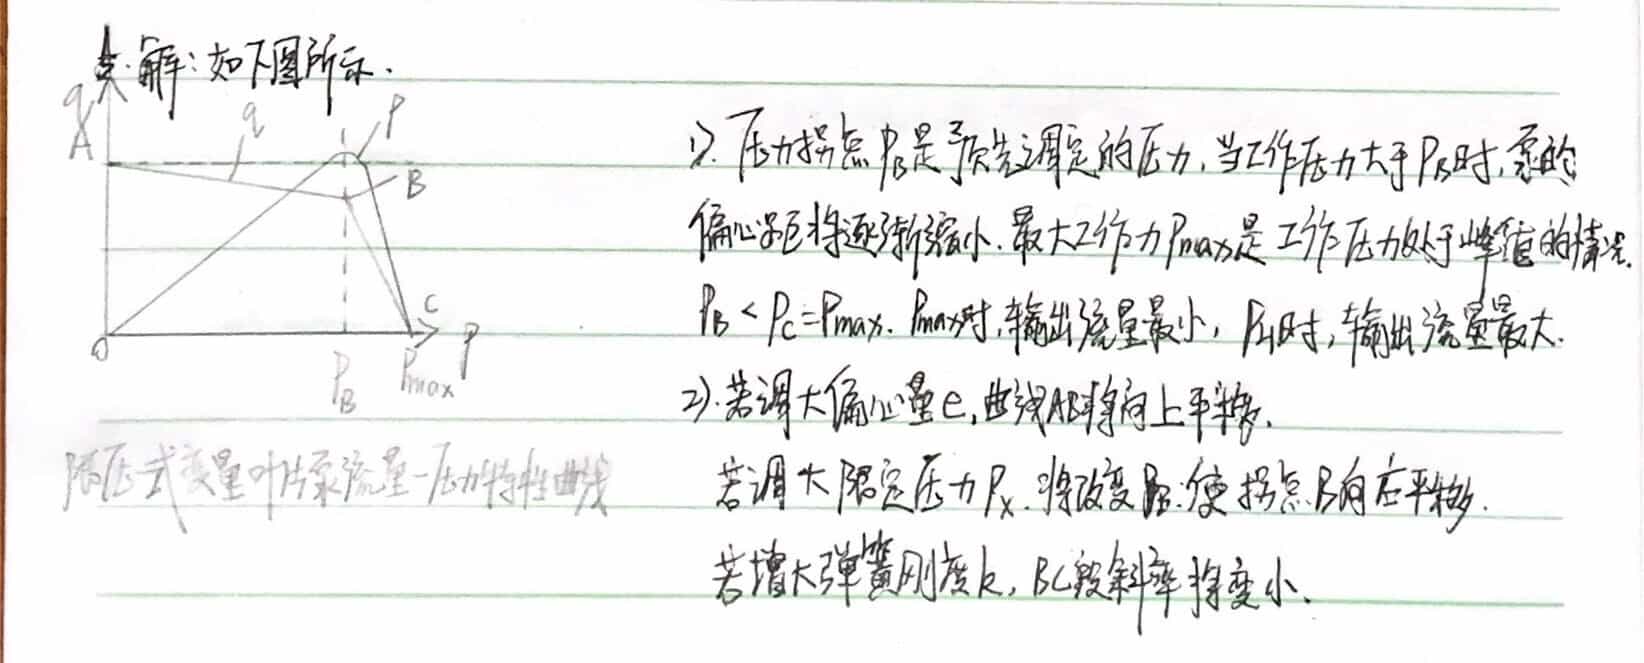 解:如下图所示.
q
A
q
P
B
C
O
P_B
P_max
P
限压式变量叶片泵流量-压力特性曲线
1).压力拐点P_B是预先调定的压力,当工作压力大于P_B时,泵的
偏心距将逐渐缩小.最大工作力P_max是工作压力处于峰值的情况.
P_B < P_C=P_max. P_max时,输出流量最小, 时,输出流量最大.
2).若调大偏心量e,曲线AB将向上平移.
若调大限定压力P_x.将改变 .使拐点B向右平移.
若增大弹簧刚度k,BC段斜率将变小.